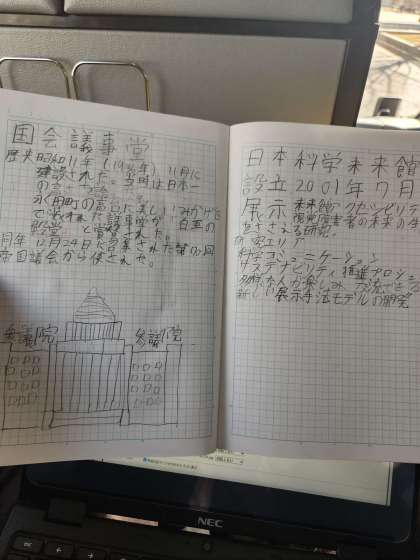 国会議事堂
歴史 昭和11年(1936年)11月に
建設された。当時は日本一
の高さを誇
永田町の高台に美しいみかげ石
で
殿堂」と賞賛された。
同年12月24日に召集された第70回
帝国議会から使された。
衆議院
参議院
日本科学未来館
設立2001年7月
展示 未来館アクセシビリティ
視覚障害者の未来の生
活をささえる研究。
研究エリア
科学コミュニケーション
サステナビリティ推進プロジェ
多様な人が楽しみ交流できる
新しい展示手法モデルの開発
NEC